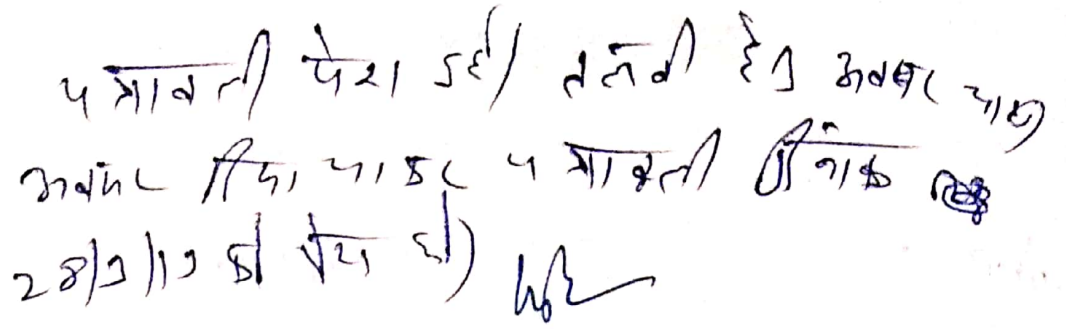 पत्रावली पेश हुई। तलबी हेतु अवसर चाहा
अवसर दिया जाकर पत्रावली दिनांक
28/9/19 को पेश हो।